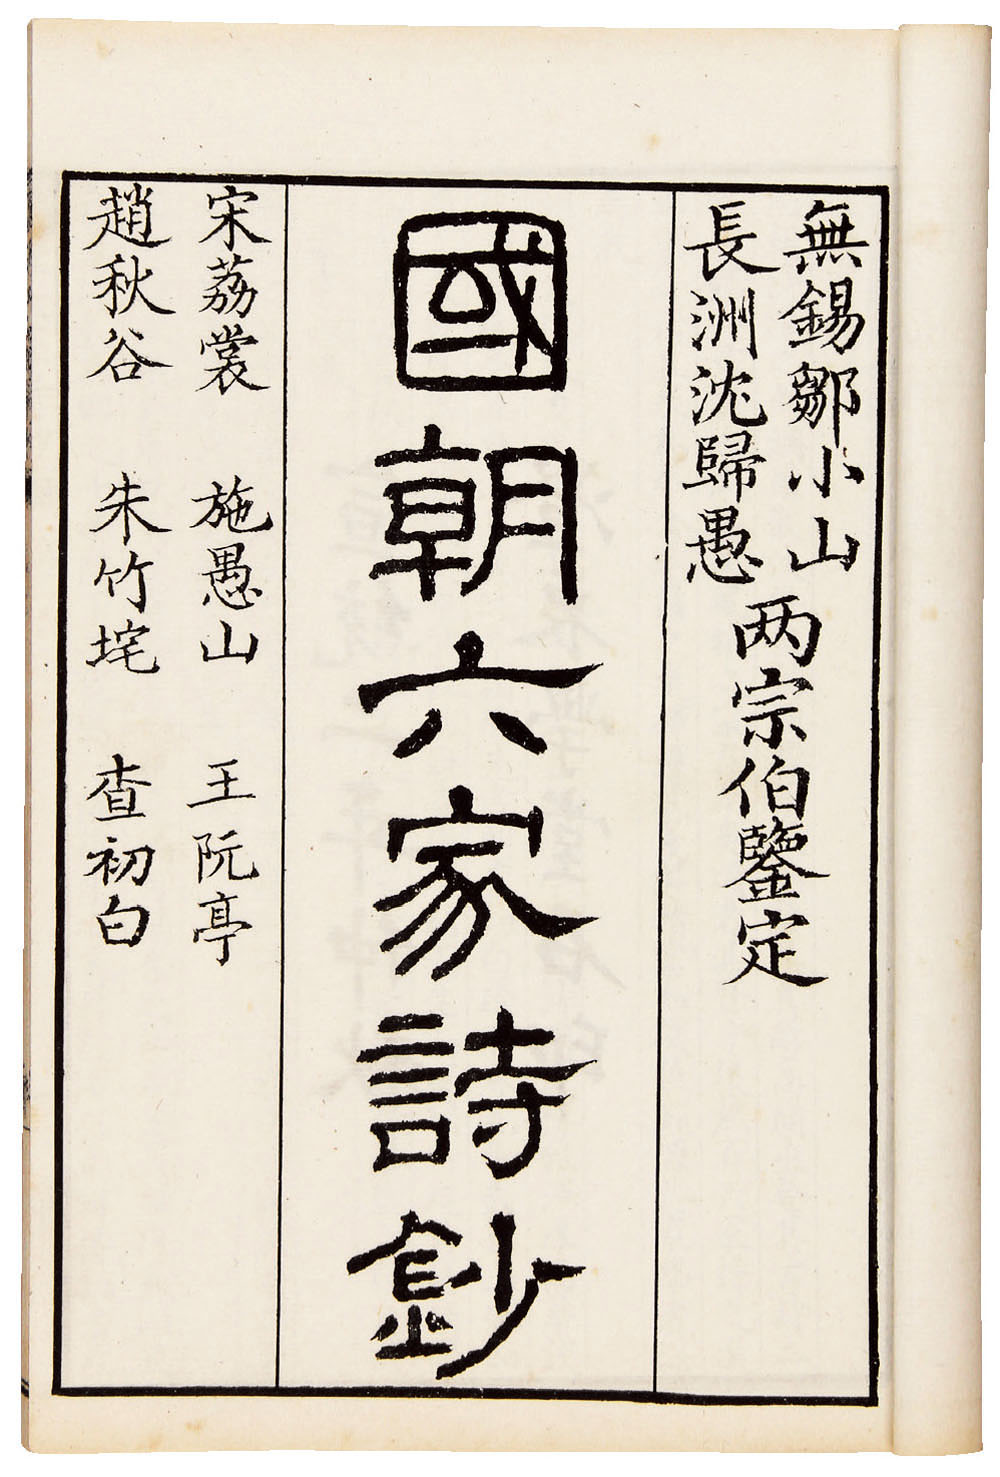 無錫鄒小山
長洲沈歸愚
两宗伯鑒定
國朝六家詩鈔
宋荔裳 施愚山 王阮亭
趙秋谷 朱竹垞 查初白